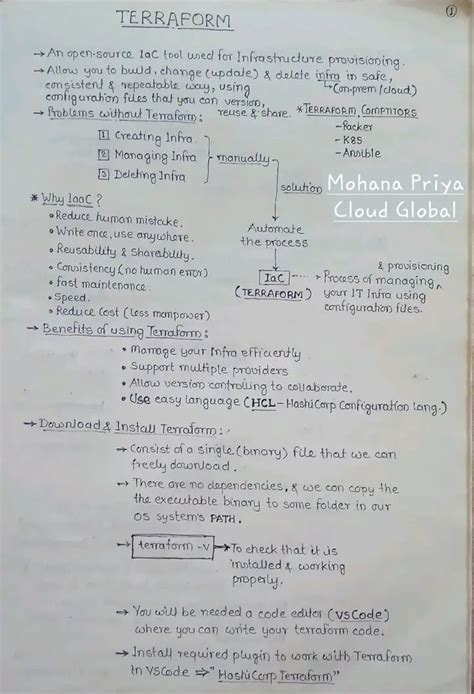 ①
TERRAFORM
→ An open-source IaC tool used for Infrastructure provisioning.
→ Allow you to build, change (update) & delete infra in safe,
consistent & repeatable way, using
↳ (on-prem / cloud)
configuration files that you can version,
reuse & share.
→ Problems without Terraform:
* TERRAFORM COMPTITORS
- Packer
- K8S
- Ansible
1 Creating Infra.
2 Managing Infra
3 Deleting Infra
manually
solution
Mohana Priya
Cloud Global
Automate
the process
* Why IaaC?
• Reduce human mistake.
• Write once, use anywhere.
• Reusability & Sharability.
• Consistency (no human error)
• fast maintenance.
• Speed.
• Reduce Cost (less manpower)
IaC
(TERRAFORM)
& provisioning
Process of managing
your IT Infra using
configuration files.
→ Benefits of using Terraform:
• Manage your Infra efficiently
• Support multiple providers
• Allow version controlling to collaborate.
• Use easy language (HCL - HashiCorp Configuration lang.)
→ Download & Install Terraform:
→ Consist of a single (binary) file that we can
freely download.
→ There are no dependencies, & we can copy the
the executable binary to some folder in our
OS system's PATH.
→ terraform -v → To check that it is
installed & working
properly.
→ You will be needed a code editor (VSCode)
where you can write your terraform code.
→ Install required plugin to work with Terraform
in VSCode ⇒ "HashiCorp Terraform"